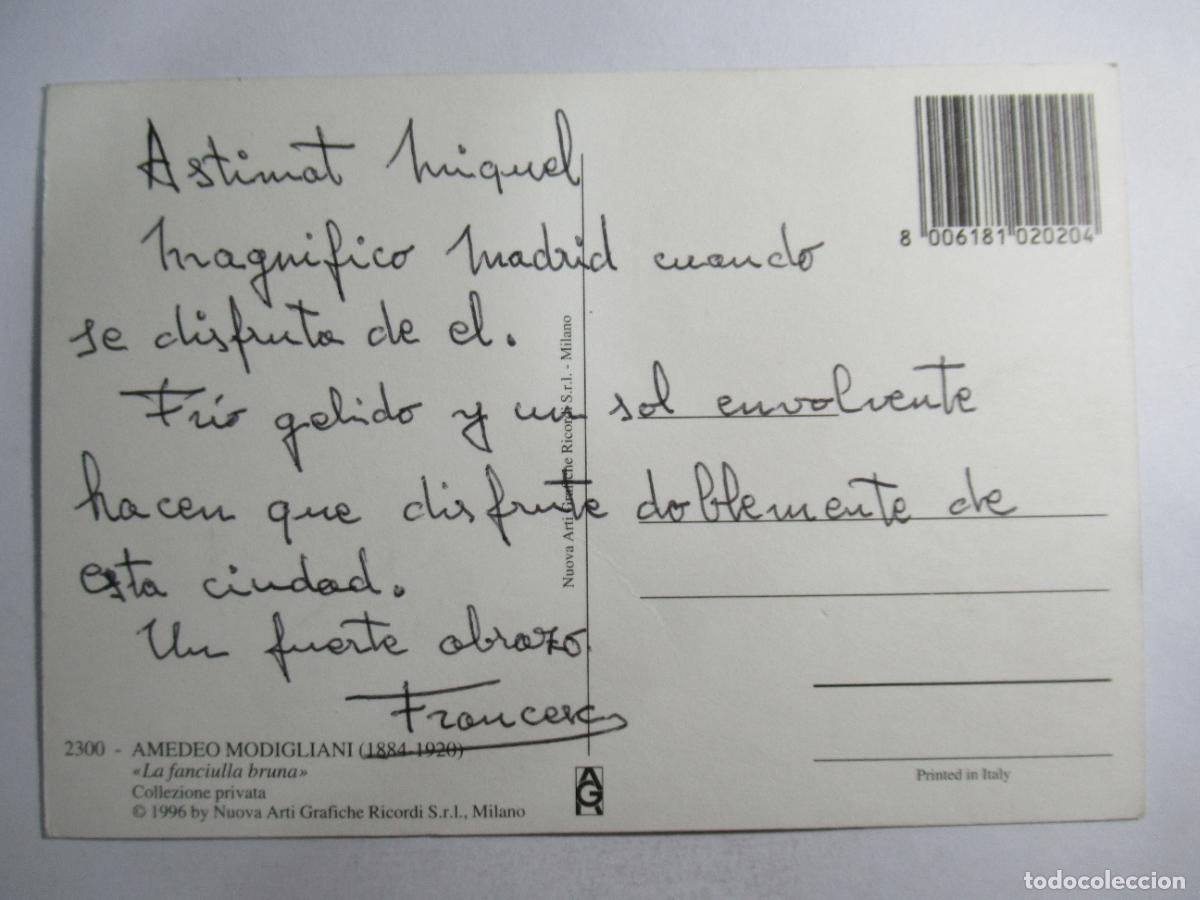 Astimat Miquel
Magnifico Madrid cuando
se disfruta de el.
Frio gelido y un sol envolvente
hacen que disfrute doblemente de
esta ciudad.
Un fuerte abrazo
Francesc
8 006181 020204
Nuova Arti Grafiche Ricordi S.r.l. - Milano
2300 - AMEDEO MODIGLIANI (1884-1920)
«La fanciulla bruna»
Collezione privata
© 1996 by Nuova Arti Grafiche Ricordi S.r.l., Milano
AGR
Printed in Italy
todocoleccion